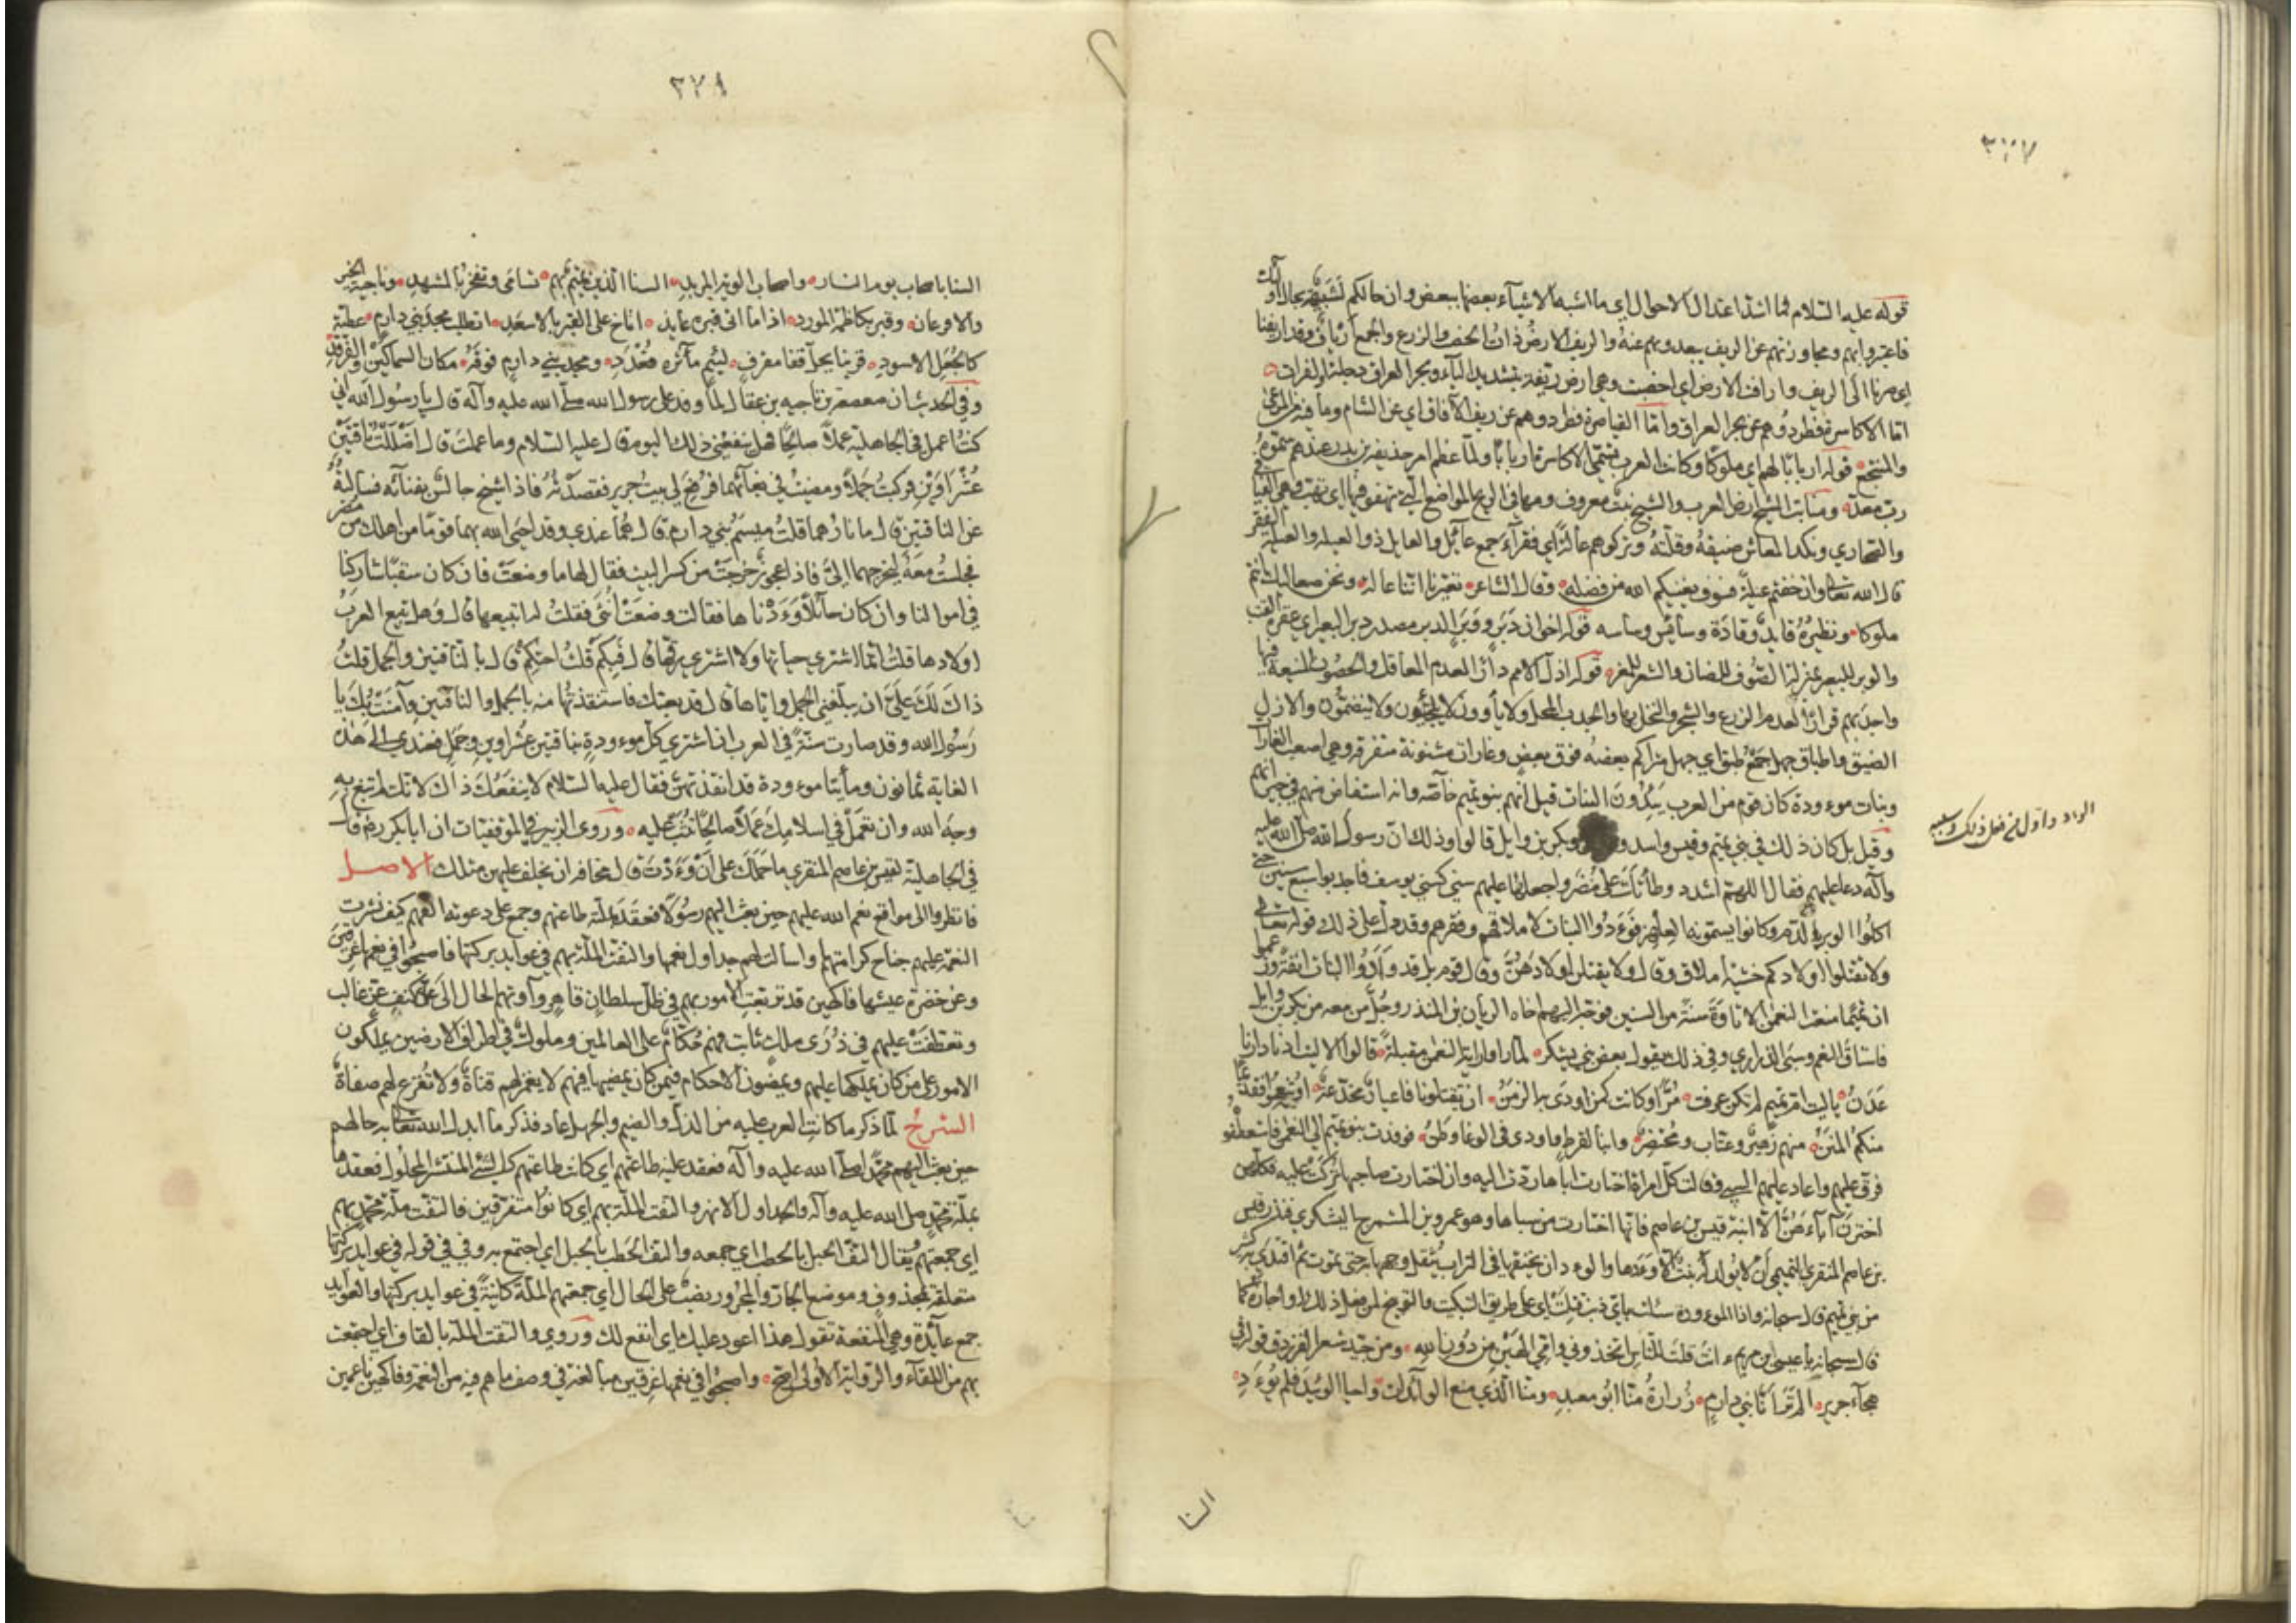 قوله عليه السلام فما اشد اعتدال الاحوال اي ما اشبه الاشياء بعضها ببعض وان حالكم لشبيهة بحال اولئك
فاعتبروا بهم ومجاوزتهم عن الريف بعدوهم عنه والريف الارض ذات الخصب والزرع والجمع ارياف وقد اريفنا
اي صرنا الى الريف وارافت الارض اي اخصبت وهي ارض ريفة بتشديد الياء وبحر العراق دجلة والفرات
اما الاكاسرة فطردوهم عن بحر العراق واما القياصرة فطردوهم عن ريف الآفاق اي عن الشام وما فيه من المرعى
والمنتجع قوله اربابا لهم اي ملوكا وكانت العرب تسمي الاكاسرة اربابا ولما عظم امر حذيفة بن بدر عندهم سموه
رب معد ومنابت الشيح ارض العرب والشيح نبت معروف ومهافي الريح المواضع التي تهفو فيها اي تهب وهي الفيافي
والصحاري ونكد المعاش ضيقه وقلته وتركوهم عالة اي فقراء جمع عائل والعايل ذو العيلة والعيلة الفقر
قال الله تعالى وان خفتم عيلة فسوف يغنيكم الله من فضله وقال الشاعر تعيرنا اننا عالة ونحن صعاليك انتم
ملوكا ونظيره قايد وقادة وسائس وساسه قوله اخوان دبر ووبر الدبر مصدر دبر البعير اي عقره القتب
والوبر للبعير بمنزلة الصوف للضان والشعر للمعز قوله اذل الامم دارا لعدم المعاقل والحصون المنيعة فيها
واجدبهم قرارا لعدم الزرع والشجر والنخل بها والجدب المحل ولا ياوون لا يلتجئون ولا ينضمون والازل
الضيق واطباق جهل جمع طبق اي جهل متراكم بعضه فوق بعض وغارات مشنونة متفرقة وهي اصعب الغارات
وبنات موءودة كان قوم من العرب يئدون البنات قيل انهم بنو تميم خاصة وانه استفاض منهم في جيرانهم
وقيل بل كان ذلك في بني تميم وقيس واسد وبكر بن وايل قالوا وذلك ان رسول الله صلى الله عليه
وآله دعا عليهم فقال اللهم اشدد وطأتك على مضر واجعلها عليهم سنين كسني يوسف فاجدبوا سبع سنين حتى
اكلوا الوبر بالدم وكانوا يسمونه العلهز فوءدوا البنات لاملاقهم وفقرهم وقد دل على ذلك قوله تعالى
ولا تقتلوا اولادكم خشية املاق وقال ولا يقتلن اولادهن وقال قوم بل قد وأدوا البنات انفة وزعموا
ان تميما منعت النعمن الاتاوة سنة من السنين فوجه اليهم اخاه الريان بن المنذر وجل من معه من بكر بن وايل
فاستاق النعم وسبى الذراري وفي ذلك يقول بعض بني يشكر لما راوا راية النعمن مقبلة قالوا الا ليت ادنا دارنا
عدن يا ليت ام تميم لم تكن عرفت مرا وكانت كمن اودى به الزمن ان تقتلونا فاعيار مخدعة او تنعموا فقديما
منكم المنن منهم زهير وعتاب ومحتضر وابنا لقيط واودى في الوغا وطن فوفدت بنو تميم الى النعمن فاستعطفوه
فرق عليهم واعاد عليهم السبي وقال كل امراة اختارت اباها ردت اليه وان اختارت صاحبها تركت عليه فكلهن
اخترن آباءهن الا ابنة قيس بن عاصم فانها اختارت من سباها وهو عمرو بن المشمرج اليشكري فنذر قيس
بن عاصم المنقري التميمي ان لا يولد له بنت الا وءدها والوءد ان يخنقها في التراب يثقل وجهها به حتى تموت ثم اقتدى به كثير
من بني تميم قال سبحانه واذا الموءودة سئلت باي ذنب قتلت اي على طريق التبكيت والتوبيخ لمن فعل ذلك او اجازه كما
قال سبحانه يا عيسى ابن مريم ءانت قلت للناس اتخذوني وامي الهين من دون الله ومن جيد شعر الفرزدق قوله في
هجاء جرير الم تر انا بني دارم زرارة منا ابو معبد ومنا الذي منع الوائدات واحيا الوئيد فلم يوءد
السنا
٢٧٩
السنا باصحاب يوم النسار واصحاب الوية المربد السنا الذين تميم بهم تسامى وتفخر بالمشهد وناجية الخير
والاقرعان وقبر بكاظمة المورد اذا ما اتى قبره عايذ اناخ على القبر بالاسعد اتطلب مجد بني دارم عطية
كالجعل الاسود قرنبا يحك قفا مقرف لئيم مآثره قعدد ومجد بني دارم فوقه مكان السماكين والفرقد
وفي الحديث ان صعصعة بن ناجيه بن عقال لما وفد على رسول الله صلى الله عليه وآله قال يا رسول الله اني
كنت اعمل في الجاهلية عملا صالحا فهل ينفعني ذلك اليوم قال عليه السلام وما عملت قال اضللت ناقتين
عشراوين فركبت جملا ومضيت في بغائهما فرفع لي بيت حريد فقصدته فاذا شيخ جالس بفنائه فسالته
عن الناقتين قال ما نارهما قلت ميسم بني دارم قال هما عندي وقد احيى الله بهما قوما من اهلك من مضر
فجلست معه ليخرجهما الي فاذا عجوز خرجت من كسر البيت فقال لها ما وضعت فان كان سقبا شاركنا
في اموالنا وان كان حائلا وءدناها فقالت وضعت انثى فقلت له اتبيعها قال وهل تبيع العرب
اولادها قلت انما اشتري حياتها ولا اشتري رقها قال فبكم قلت احتكم قال بالناقتين والجمل قلت
ذاك لك على ان يبلغني الجمل واياها قال قد بعتك فاستنقذتها منه بالجمل والناقتين وآمنت بك يا
رسول الله وقد صارت سنة في العرب ان اشتري كل موءودة بناقتين عشراوين وجمل فعندي الى هذه
الغاية ثمانون ومأيتا موءودة قد انقذتهن فقال عليه السلام لا ينفعك ذاك لانك لم تبتغ به
وجه الله وان تعمل في اسلامك عملا صالحا تثب عليه وروى الزبير في الموفقيات ان ابا بكر رض قال
في الجاهلية لقيس بن عاصم المنقري ما حملك على ان وءدت قال مخافة ان يخلف عليهن مثلك الاصل
فانظروا الى مواقع نعم الله عليهم حين بعث اليهم رسولا فعقد بملته طاعتهم وجمع على دعوته الفهم كيف نشرت
النعمة عليهم جناح كرامتها واسالت لهم جداول نعيمها والتفت الملة بهم في عوايد بركتها فاصبحوا في نعمتها غرقين
وعن خضرة عيشها فاكهين قد تربعت الامور بهم في ظل سلطان قاهر وآوتهم الحال الى كنف عز غالب
وتعطفت عليهم في ذرى ملك ثابت فهم حكام على العالمين وملوك في اطراف الارضين يملكون
الامور على من كان يملكها عليهم ويمضون الاحكام فيمن كان يمضيها فيهم لا يغمز لهم قناة ولا تقرع لهم صفاة
الشرح لما ذكر ما كانت العرب عليه من الذل والضيم والجهل عاد فذكر ما ابدل الله تعالى به حالهم
حين بعث اليهم محمدا صلى الله عليه وآله فعقد عليه طاعتهم اي كانت طاعتهم كالشئ المنتشر المحلول فعقدها
بملة محمد صلى الله عليه وآله والجداول الانهر والتفت الملة بهم اي كانوا متفرقين فالتفت ملة محمد بهم
اي جمعتهم يقال التف الحبل بالحطب اي جمعه والتف الحطب بالحبل اي اجتمع به وفي في قوله في عوايد بركتها
متعلقة بمحذوف وموضع الجار والمجرور نصب على الحال اي جمعتهم الملة كائنة في عوايد بركتها والعوايد
جمع عائدة وهي المنفعة تقول هذا اعود عليك اي انفع لك وروي والتقت الملة بالقاف اي اجتمعت
بهم من اللقاء والرواية الاولى اصح واصبحوا في نعمتها غرقين مبالغة في وصف ما هم فيه من النعمة وفاكهين ناعمين